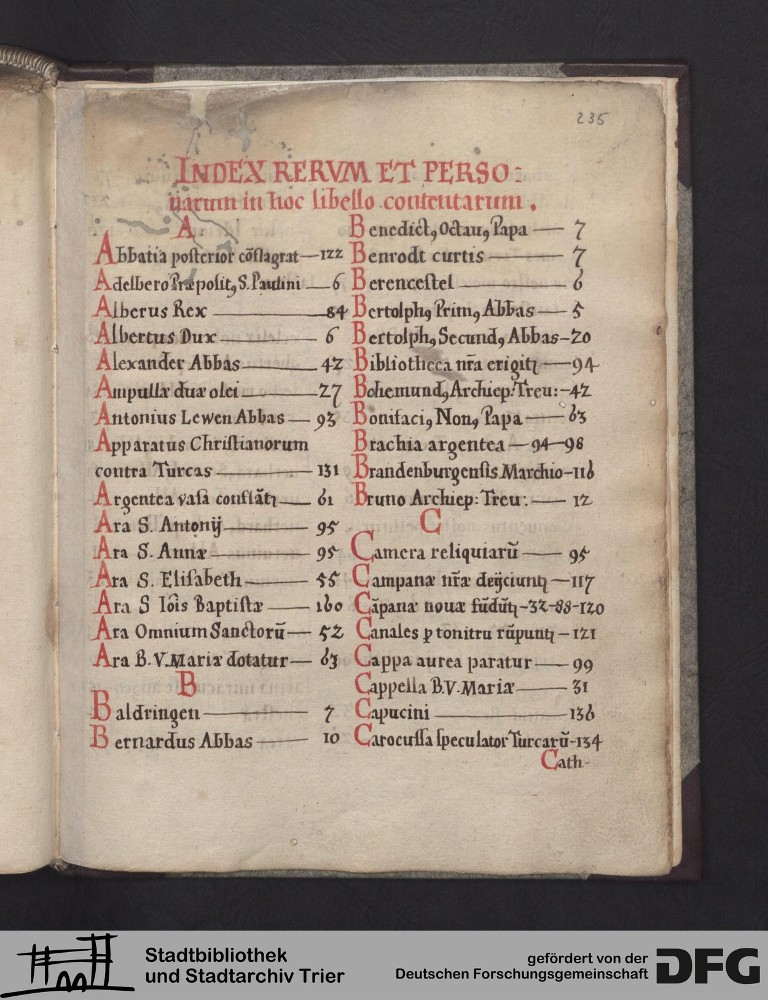 235
INDEX RERVM ET PERSO-
narum in hoc libello contentarum.
A
Abbatia posterior cõflagrat—122
Adelbero Præposit, S. Paulini—6
Alberus Rex—84
Albertus Dux—6
Alexander Abbas—42
Ampullæ duæ olei—27
Antonius Lewen Abbas—93
Apparatus Christianorum
contra Turcas—131
Argentea vasa conflãt—61
Ara S. Antonij—95
Ara S. Annæ—95
Ara S. Elisabeth—55
Ara S Iõis Baptistæ—160
Ara Omnium Sanctorũ—52
Ara B. V. Mariæ dotatur—63
B
Baldringen—7
Bernardus Abbas—10
Benedict, Octau, Papa—7
Benrodt curtis—7
Berencestel—6
Bertolph, Prim, Abbas—5
Bertolph, Secund, Abbas-20
Bibliotheca nr̃a erigit—94
Bohemund, Archiep: Treu:-42
Bonifaci, Non, Papa—63
Brachia argentea—94-98
Brandenburgensis Marchio-116
Bruno Archiep: Treu:—12
C
Camera reliquiarũ—95
Campanæ nr̃æ deijciunt—117
Cãpanæ nouæ fũdũt-32-88-120
Canales p tonitru rũpunt-121
Cappa aurea paratur—99
Cappella B. V. Mariæ—31
Capucini—136
Carocussa speculator Turcarũ-134
Cath-
Stadtbibliothek
und Stadtarchiv Trier
gefördert von der
Deutschen Forschungsgemeinschaft
DFG